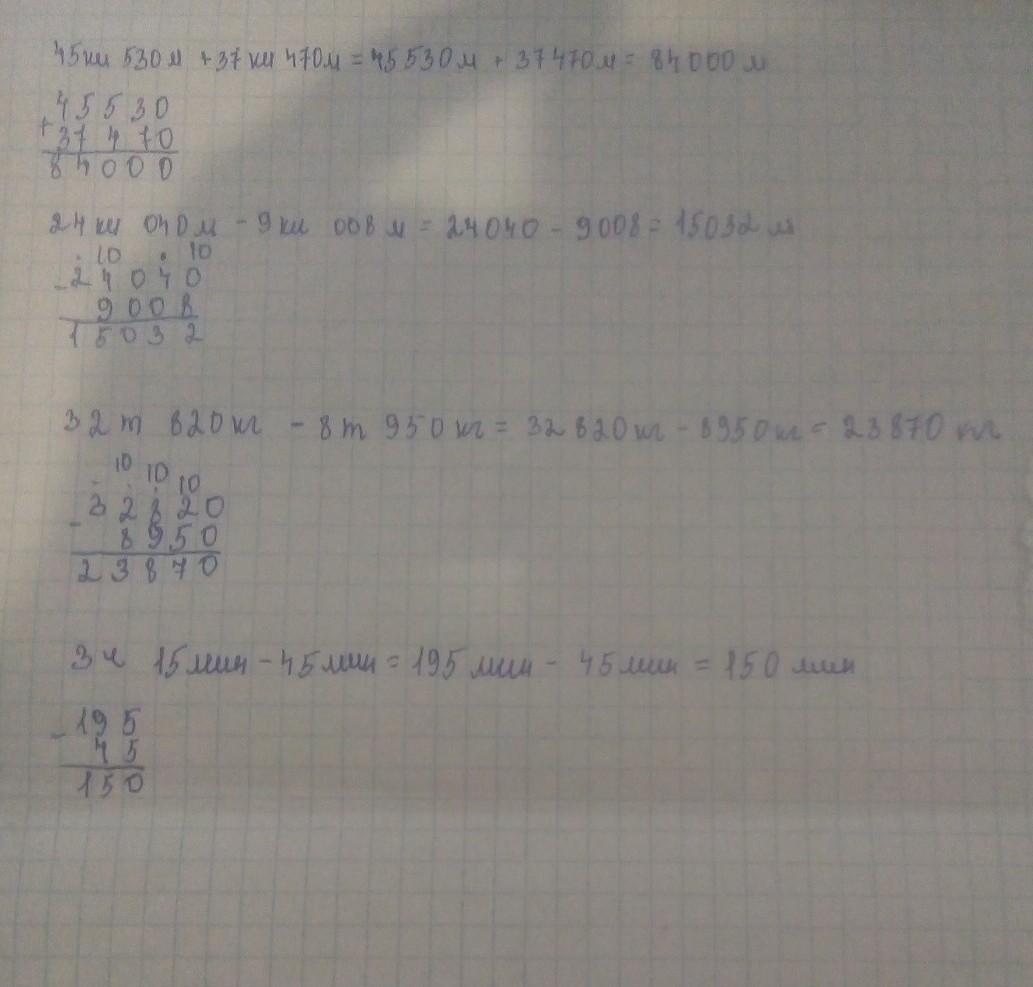 45км 530м + 37км 470м = 45530м + 37470м = 84000м
45530
+
37470
84000
24км 040м - 9км 008м = 24040 - 9008 = 15032м
. 10 . 10
- 24040
9008
15032
32т 820кг - 8т 950кг = 32820кг - 8950кг = 23870кг
. 10 10 10
- 32820
8950
23870
3ч 15мин - 45мин = 195мин - 45мин = 150мин
- 195
45
150